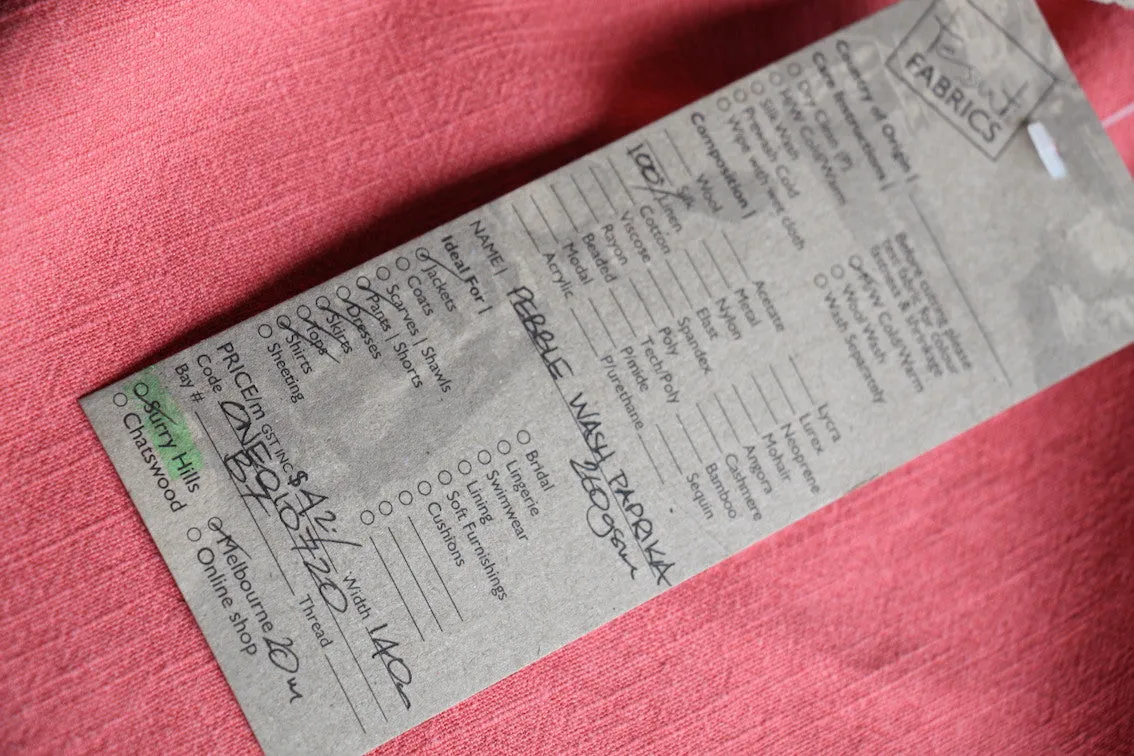 FABRICS
Country of Origin |
Care Instructions |
Dry Clean (P)
H/W Cold/Warm
Silk Wash
Prewash Cold
Wipe with wet cloth
Before cutting please
test fabric for colour
fastness & shrinkage
M/W Cold/Warm
Wool Wash
Wash Separately
Composition |
Wool
Silk
100% Linen
Cotton
Viscose
Rayon
Beaded
Modal
Acrylic
Acetate
Metal
Nylon
Elast
Spandex
Poly
Tech/Poly
Pimide
P/urethane
Lycra
Lurex
Neoprene
Mohair
Angora
Cashmere
Bamboo
Sequin
NAME | PEBBLE WASH PAPRIKA
260gsm
Ideal For |
Jackets
Coats
Scarves | Shawls
Pants | Shorts
Dresses
Skirts
Tops
Shirts
Sheeting
Bridal
Lingerie
Swimwear
Lining
Soft Furnishings
Cushions
PRICE/m GST INC $ 42:/ Width 140
Code
Bay #
Thread
Surry Hills
Chatswood
Melbourne 20m
Online shop